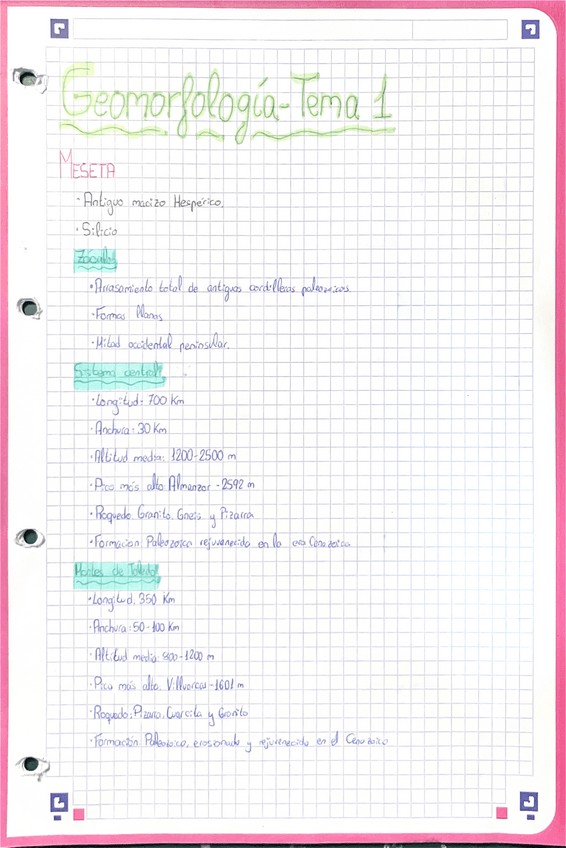 Geomorfología-Tema 1
MESETA
· Antiguo macizo Hespérico.
· Silicio
Zócalo
· Arrasamiento total de antiguas cordilleras paleozoicas.
· Formas llanas
· Mitad occidental peninsular.
Sistema central
· Longitud: 700 Km
· Anchura: 30 Km
· Altitud media: 1200-2500 m
· Pico más alto Almanzor - 2592 m
· Roquedo Granito, Gneis y Pizarra
· Formación Paleozoica rejuvenecido en la era Cenozoica
Montes de Toledo
· Longitud: 350 Km
· Anchura: 50-100 Km
· Altitud media: 800-1200 m
· Pico más alto. Villuercas - 1601 m
· Roquedo: Pizarra, Cuarcita y Granito
· Formación Paleozoico, erosionado y rejuvenecido en el Cenozoico